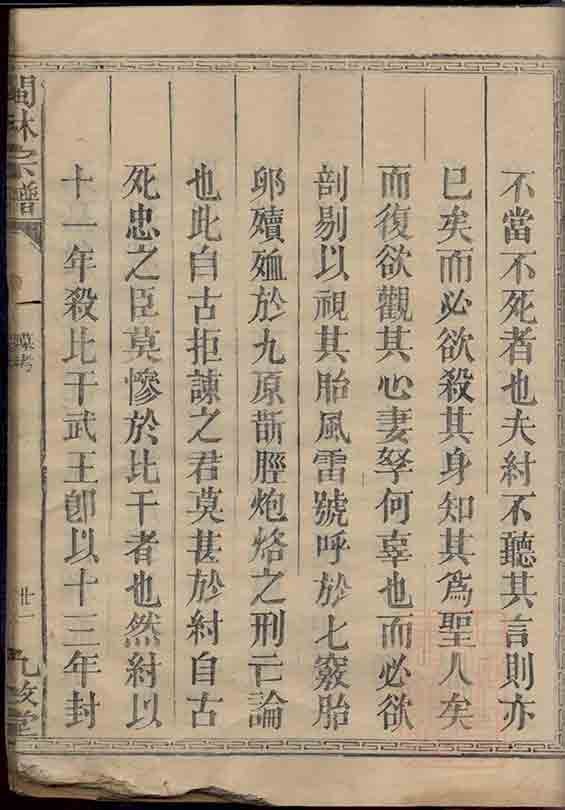 不當不死者也夫紂不聽其言則亦
已矣而必欲殺其身知其為聖人矣
而復欲觀其心妻孥何辜也而必欲
剖剔以視其胎風雷號呼於七竅胎
卵殰殈於九原斮脛炮烙之刑亡論
也此自古拒諫之君莫甚於紂自古
死忠之臣莫慘於比干者也然紂以
十一年殺比干武王卽以十三年封
林宗譜
墓考
廿一
九牧堂